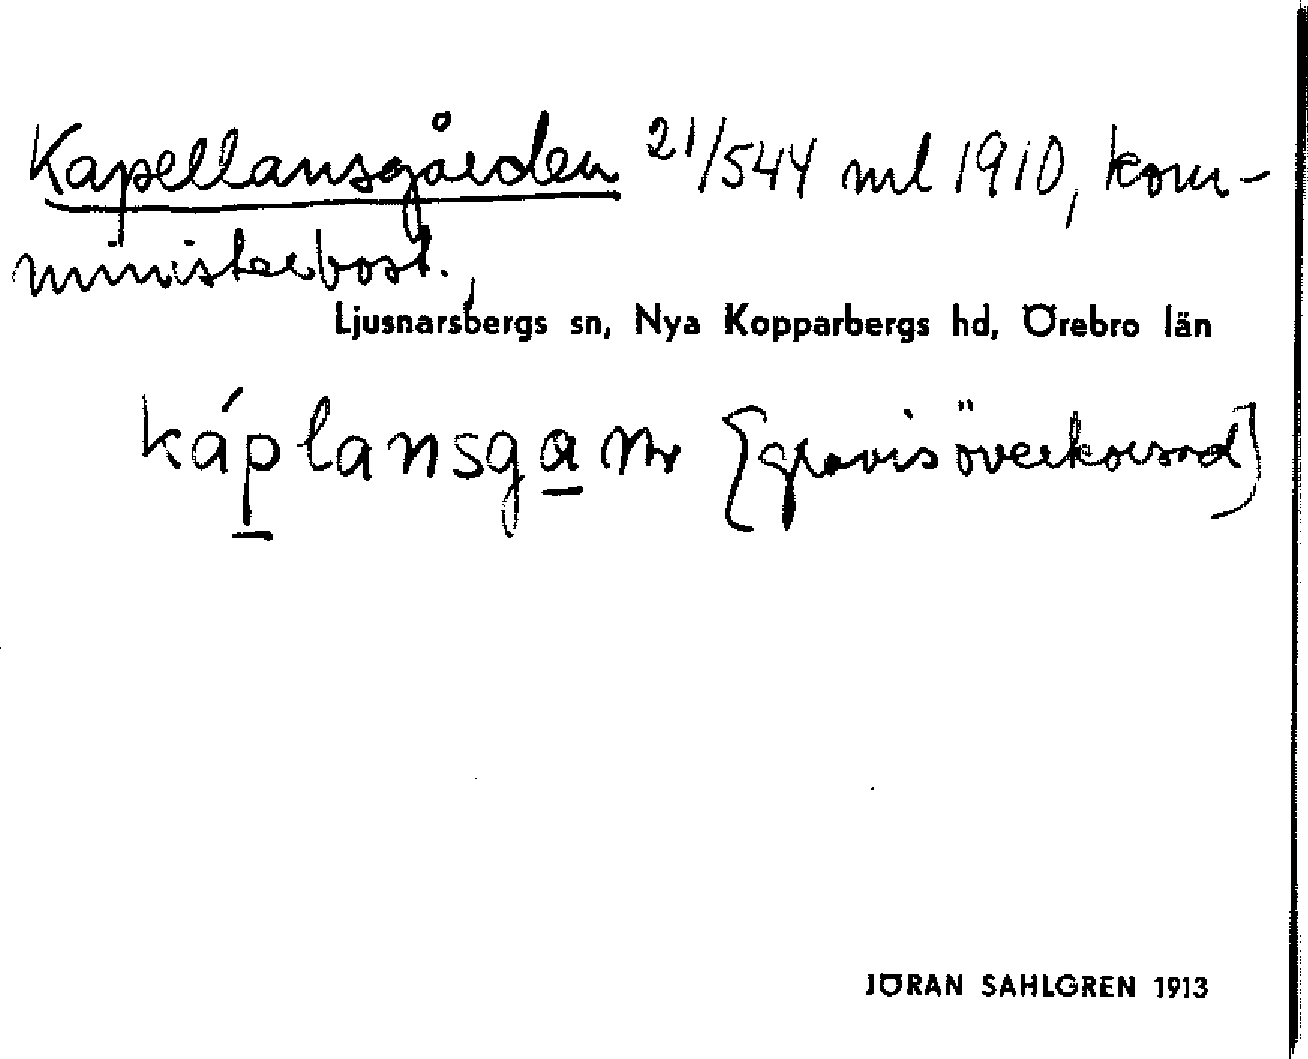 Kapellansgården 21/544 ml 1910, kom-
ministerbost.
Ljusnarsbergs sn, Nya Kopparbergs hd, Örebro län
káplansga {gravis överkorsad}
JÖRAN SAHLGREN 1913